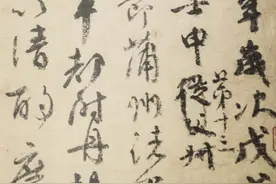 年歲次戊
第十三
壬申從父叔
節蒲州諸
車都尉丹
以清酌庶